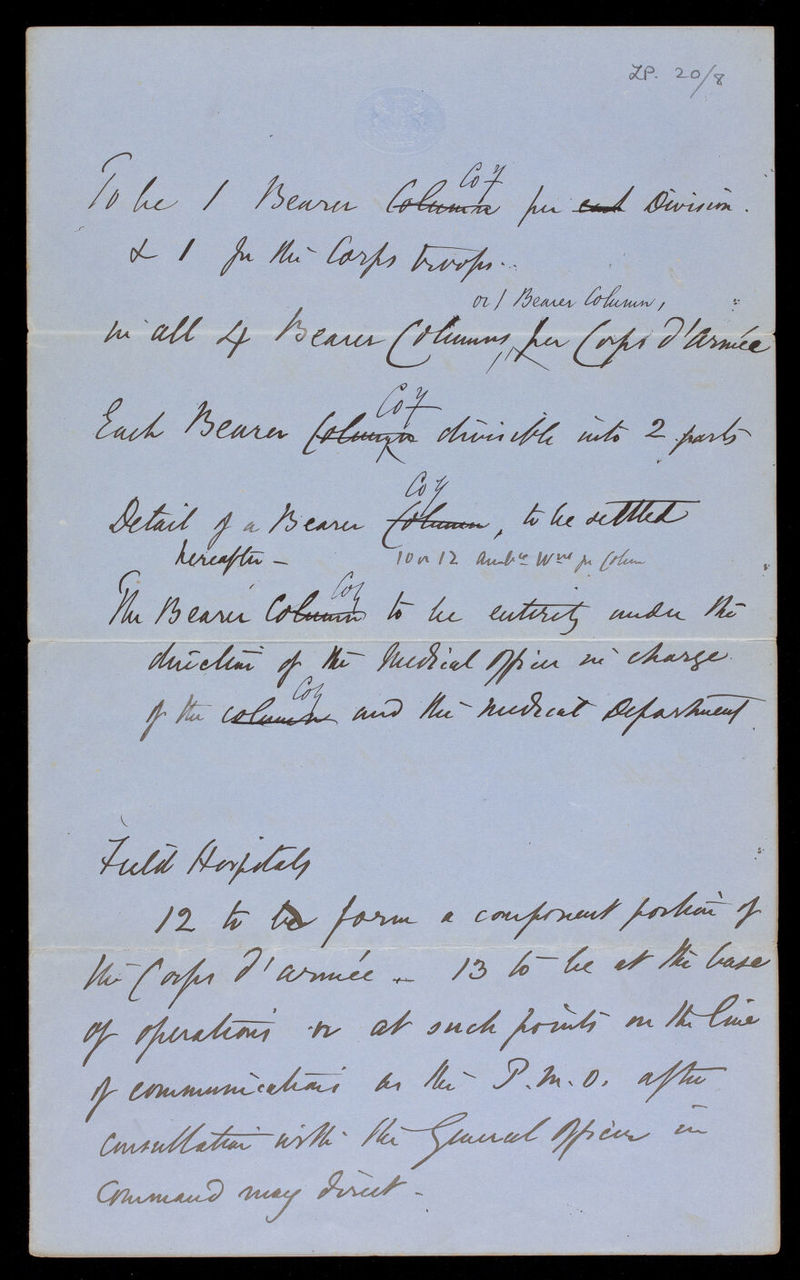 LP. 20/8
Coy
To be 1 Bearer Column per each Division.
& 1 for the Corps troops.
or 1 Bearer Column,
in all 4 Bearer Columns, per Corps d'Armée
Coy
Each Bearer Column divisible into 2 parts
Coy
Detail of a Bearer Column, to be settled
hereafter - 10 or 12 Ambce Wns per Colum
Coy
The Bearer Column to be entirely under the
direction of the Medical Officer in charge
Coy
of the column and the Medical Department
Field Hospitals
12 to be form a component portion of
the Corps d'armée - 13 to be at the base
of operations or at such points on the line
of communications as the P.M.O. after
consultation with the General Officer in
Command may direct -